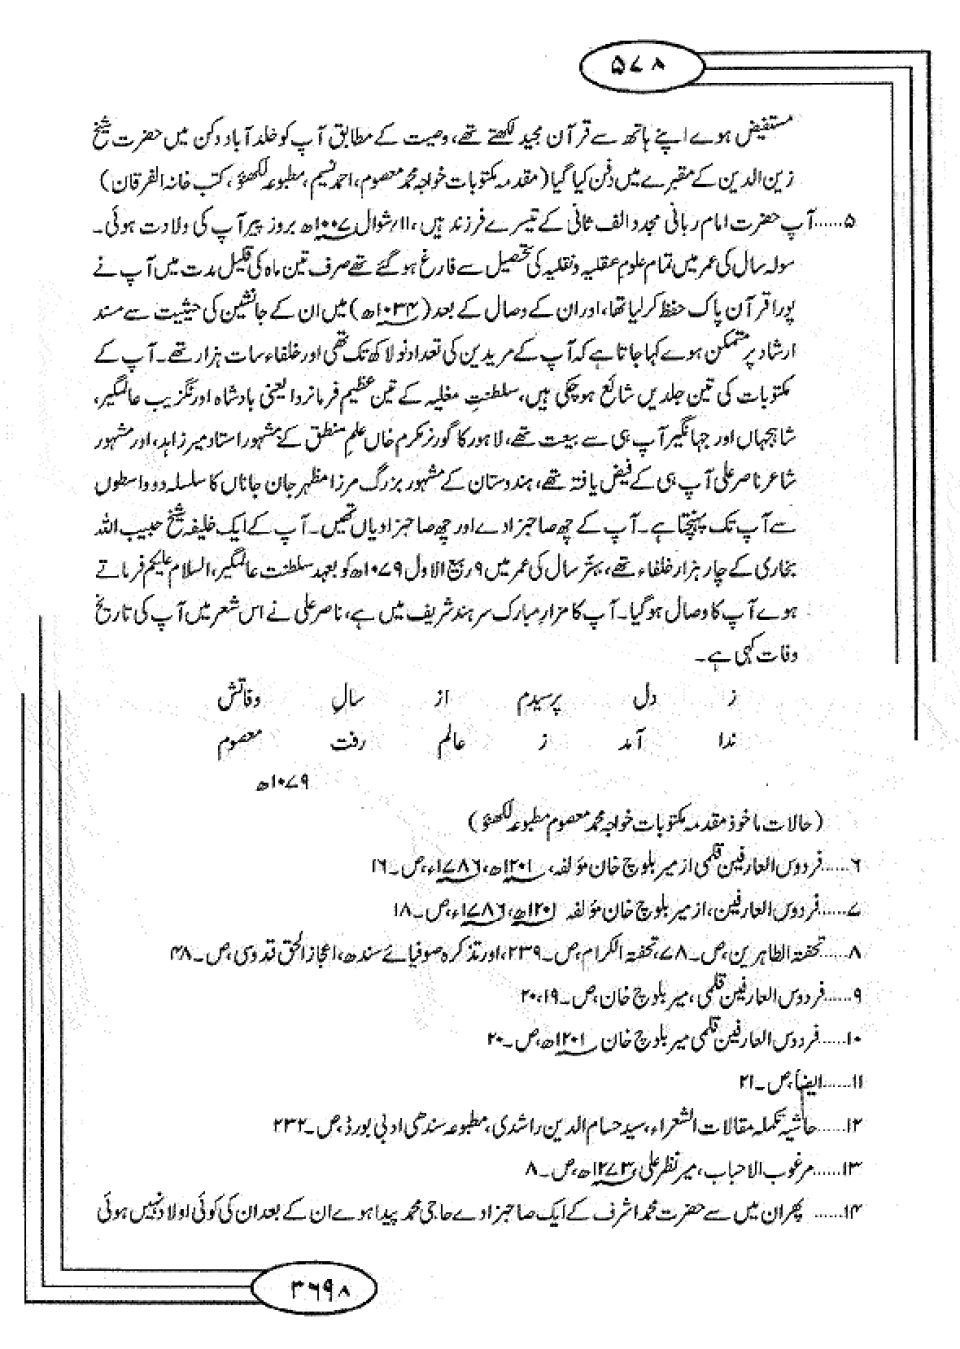 ۵۷۸
مستفیض ہوے اپنے ہاتھ سے قرآن مجید لکھتے تھے، وصیت کے مطابق آپ کو خلد آباد دکن میں حضرت شیخ
زین الدین کے مقبرے میں دفن کیا گیا (مقدمہ مکتوبات خواجہ محمد معصوم، احمد نسیم، مطبوعہ لکھنؤ، کتب خانہ الفرقان)
۵......آپ حضرت امام ربانی مجدد الف ثانی کے تیسرے فرزند ہیں، ۱۱/ شوال ۱۰۰۷ھ بروز پیر آپ کی ولادت ہوئی۔
سولہ سال کی عمر میں تمام علوم عقلیہ و نقلیہ کی تحصیل سے فارغ ہو گئے تھے صرف تین ماہ کی قلیل مدت میں آپ نے
پورا قرآن پاک حفظ کر لیا تھا، اور ان کے وصال کے بعد (۱۰۳۴ھ) میں ان کے جانشین کی حیثیت سے مسند
ارشاد پر متمکن ہوے کہا جاتا ہے کہ آپ کے مریدین کی تعداد نو لاکھ تک تھی اور خلفاء سات ہزار تھے۔ آپ کے
مکتوبات کی تین جلدیں شائع ہو چکی ہیں، سلطنتِ مغلیہ کے تین عظیم فرمانروا یعنی بادشاہ اورنگزیب عالمگیر،
شاہجہاں اور جہانگیر آپ ہی سے بیعت تھے، لاہور کا گورنر مکرم خاں علمِ منطق کے مشہور استاد میر زاہد، اور مشہور
شاعر ناصر علی آپ ہی کے فیض یافتہ تھے، ہندوستان کے مشہور بزرگ مرزا مظہر جان جاناں کا سلسلہ دو واسطوں
سے آپ تک پہنچتا ہے۔ آپ کے چھ صاحبزادے اور چھ صاحبزادیاں تھیں۔ آپ کے ایک خلیفہ شیخ حبیب اللہ
بخاری کے چار ہزار خلفاء تھے، بہتر سال کی عمر میں ۹ ربیع الاول ۱۰۷۹ھ کو بعہد سلطنت عالمگیر، السلام علیکم فرماتے
ہوے آپ کا وصال ہو گیا۔ آپ کا مزارِ مبارک سرہند شریف میں ہے، ناصر علی نے اس شعر میں آپ کی تاریخ
وفات کہی ہے۔
ز دل پرسیدم از سالِ وفاتش
ندا آمد ز عالم رفت معصوم
۱۰۷۹ھ
(حالات ماخوذ مقدمہ مکتوبات خواجہ محمد معصوم مطبوعہ لکھنؤ)
۶......فردوس العارفین قلمی از میر بلوچ خان مؤلفہ، ۱۲۰۱ھ، ۱۷۸۶ء، ص۔۱۶
۷......فردوس العارفین، از میر بلوچ خان مؤلفہ ۱۲۰۱ھ، ۱۷۸۶ء، ص۔۱۸
۸......تحفۃ الطاہرین، ص۔۷۸، تحفۃ الکرام، ص۔۲۳۹، اور تذکرہ صوفیائے سندھ، اعجاز الحق قدوسی، ص۔۴۸
۹......فردوس العارفین قلمی، میر بلوچ خان، ص۔۲۰،۱۹
۱۰......فردوس العارفین قلمی میر بلوچ خان ۱۲۰۱ھ، ص۔۲۰
۱۱......ایضاً، ص۔۲۱
۱۲......حاشیہ تکملہ مقالات الشعراء، سید حسام الدین راشدی، مطبوعہ سندھی ادبی بورڈ، ص۔۲۳۲
۱۳......مرغوب الاحباب، میر نظر علی ۱۲۷۳ھ، ص۔۸
۱۴...... پھر ان میں سے حضرت محمد اشرف کے ایک صاحبزادے حاجی محمد پیدا ہوے ان کے بعد ان کی کوئی اولاد نہیں ہوئی
۳۶۹۸